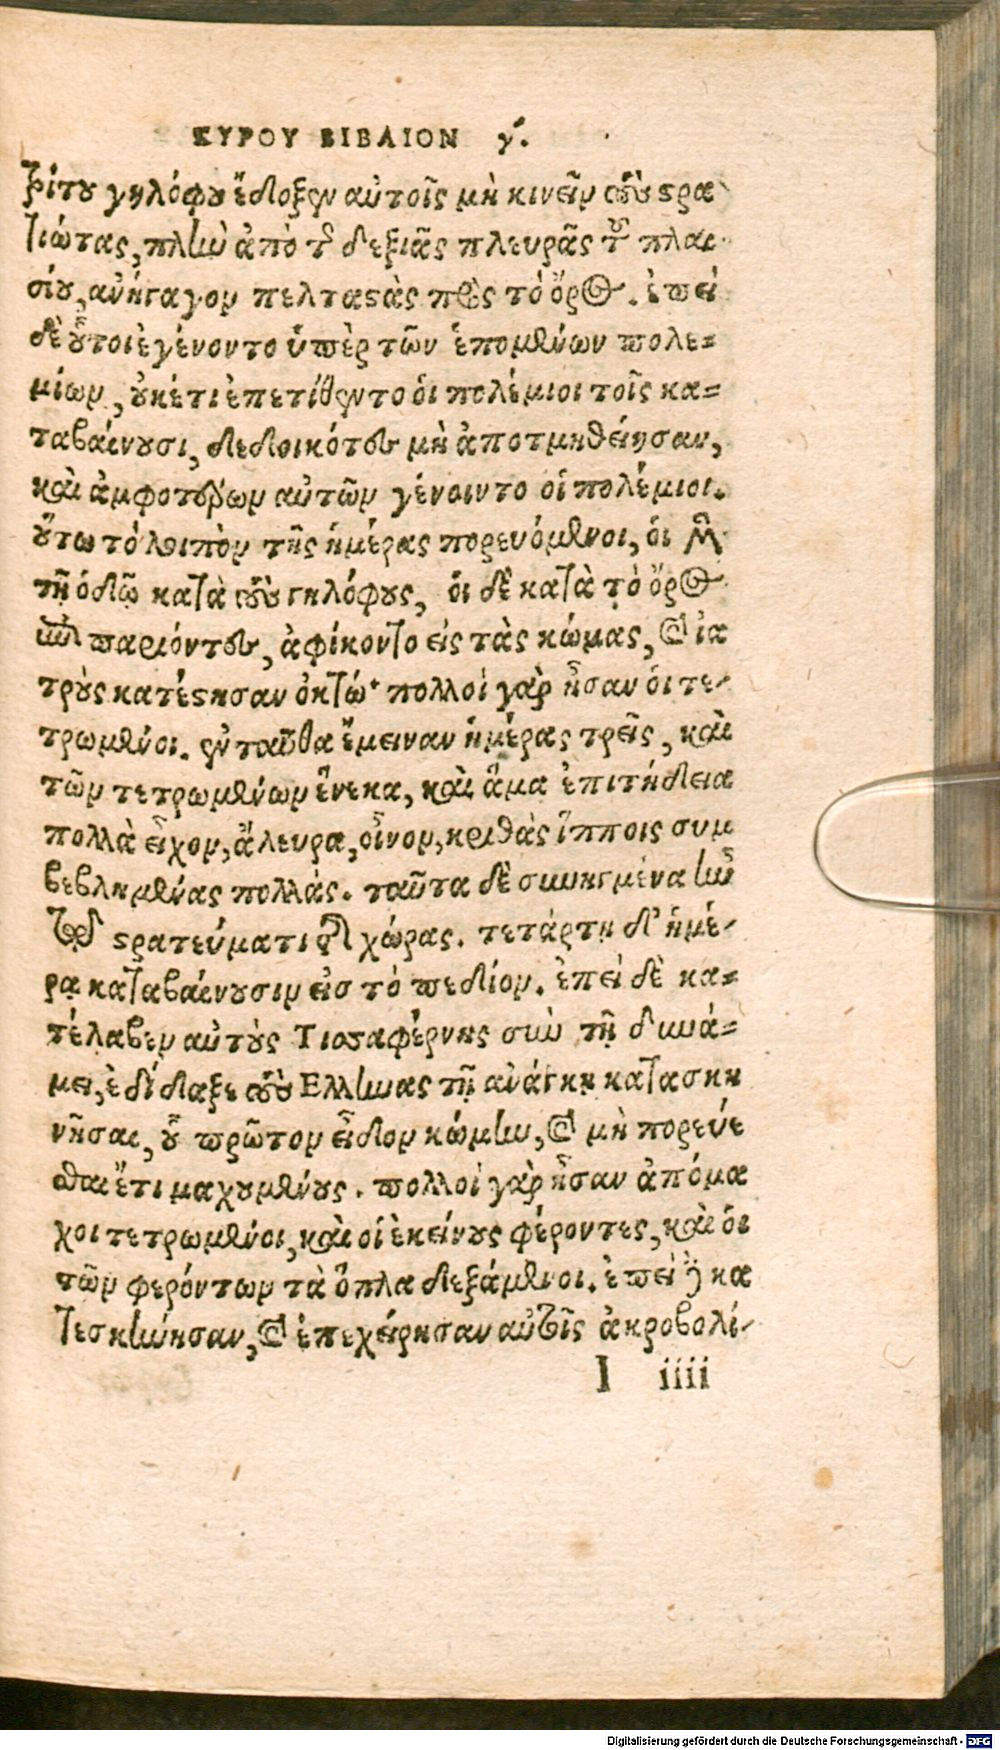 ΚΥΡΟΥ ΒΙΒΛΙΟΝ γ´.
τρίτου γηλόφου ἔδοξεν αὐτοῖς μὴ κινεῖν τοὺς στρα
τιώτας, πλὴν ἀπὸ τῆς δεξιᾶς πλευρᾶς τοῦ πλαι-
σίου, ἀνήγαγον πελταστὰς πρὸς τὸ ὄρος. ἐπεὶ
δὲ οὗτοι ἐγένοντο ὑπὲρ τῶν ἑπομένων πολε=
μίων, οὐκέτι ἐπετίθεντο ὁι πολέμιοι τοῖς κα=
ταβαίνουσι, δεδοικότες μὴ ἀποτμηθείησαν,
καὶ ἀμφοτέρωμ αὐτῶν γένοιντο οἱ πολέμιοι.
οὕτω τὸ λοιπὸν τῆς ἡμέρας πορευόμενοι, ὁι μὲν
τῇ ὁδῷ κατὰ τοὺς γηλόφους, ὁι δὲ κατὰ τὸ ὄρος
ἐπιπαριόντες, ἀφίκοντο εἰς τὰς κώμας, καὶ ἰα
τροὺς κατέστησαν ὀκτώ· πολλοὶ γὰρ ἦσαν ὁι τε-
τρωμένοι. ἐνταῦθα ἔμειναν ἡμέρας τρεῖς, καὶ
τῶν τετρωμένων ἕνεκα, καὶ ἅμα ἐπιτήδεια
πολλὰ εἶχον, ἄλευρα, οἶνον, κριθὰς ἵπποις συμ
βεβλημένας πολλάς. ταῦτα δὲ συνηγμένα ἦν
τῷ στρατεύματι τῆς χώρας. τετάρτῃ δ' ἡμέ-
ρᾳ καταβαίνουσιν εἰσ τὸ πεδίον. ἐπεὶ δὲ κα=
τέλαβεν αὐτοὺς Τισσαφέρνης σὺν τῇ δυνά=
μει, ἐδίδαξε τοὺς Ελληνας τῇ ἀνάγκῃ κατασκη
νῆσαι, οὗ πρῶτον εἶδον κώμην, καὶ μὴ πορεύε
σθαι ἔτι μαχουμένους. πολλοὶ γὰρ ἦσαν ἀπόμα
χοι τετρωμένοι, καὶ οἱ ἐκείνους φέροντες, καὶ ὁι
τῶν φερόντων τὰ ὅπλα δεξάμενοι. ἐπεὶ δὲ κα
τεσκήνησαν, καὶ ἐπεχείρησαν αὐτοῖς ἀκροβολί-
I iiii
Digitalisierung gefördert durch die Deutsche Forschungsgemeinschaft - DFG